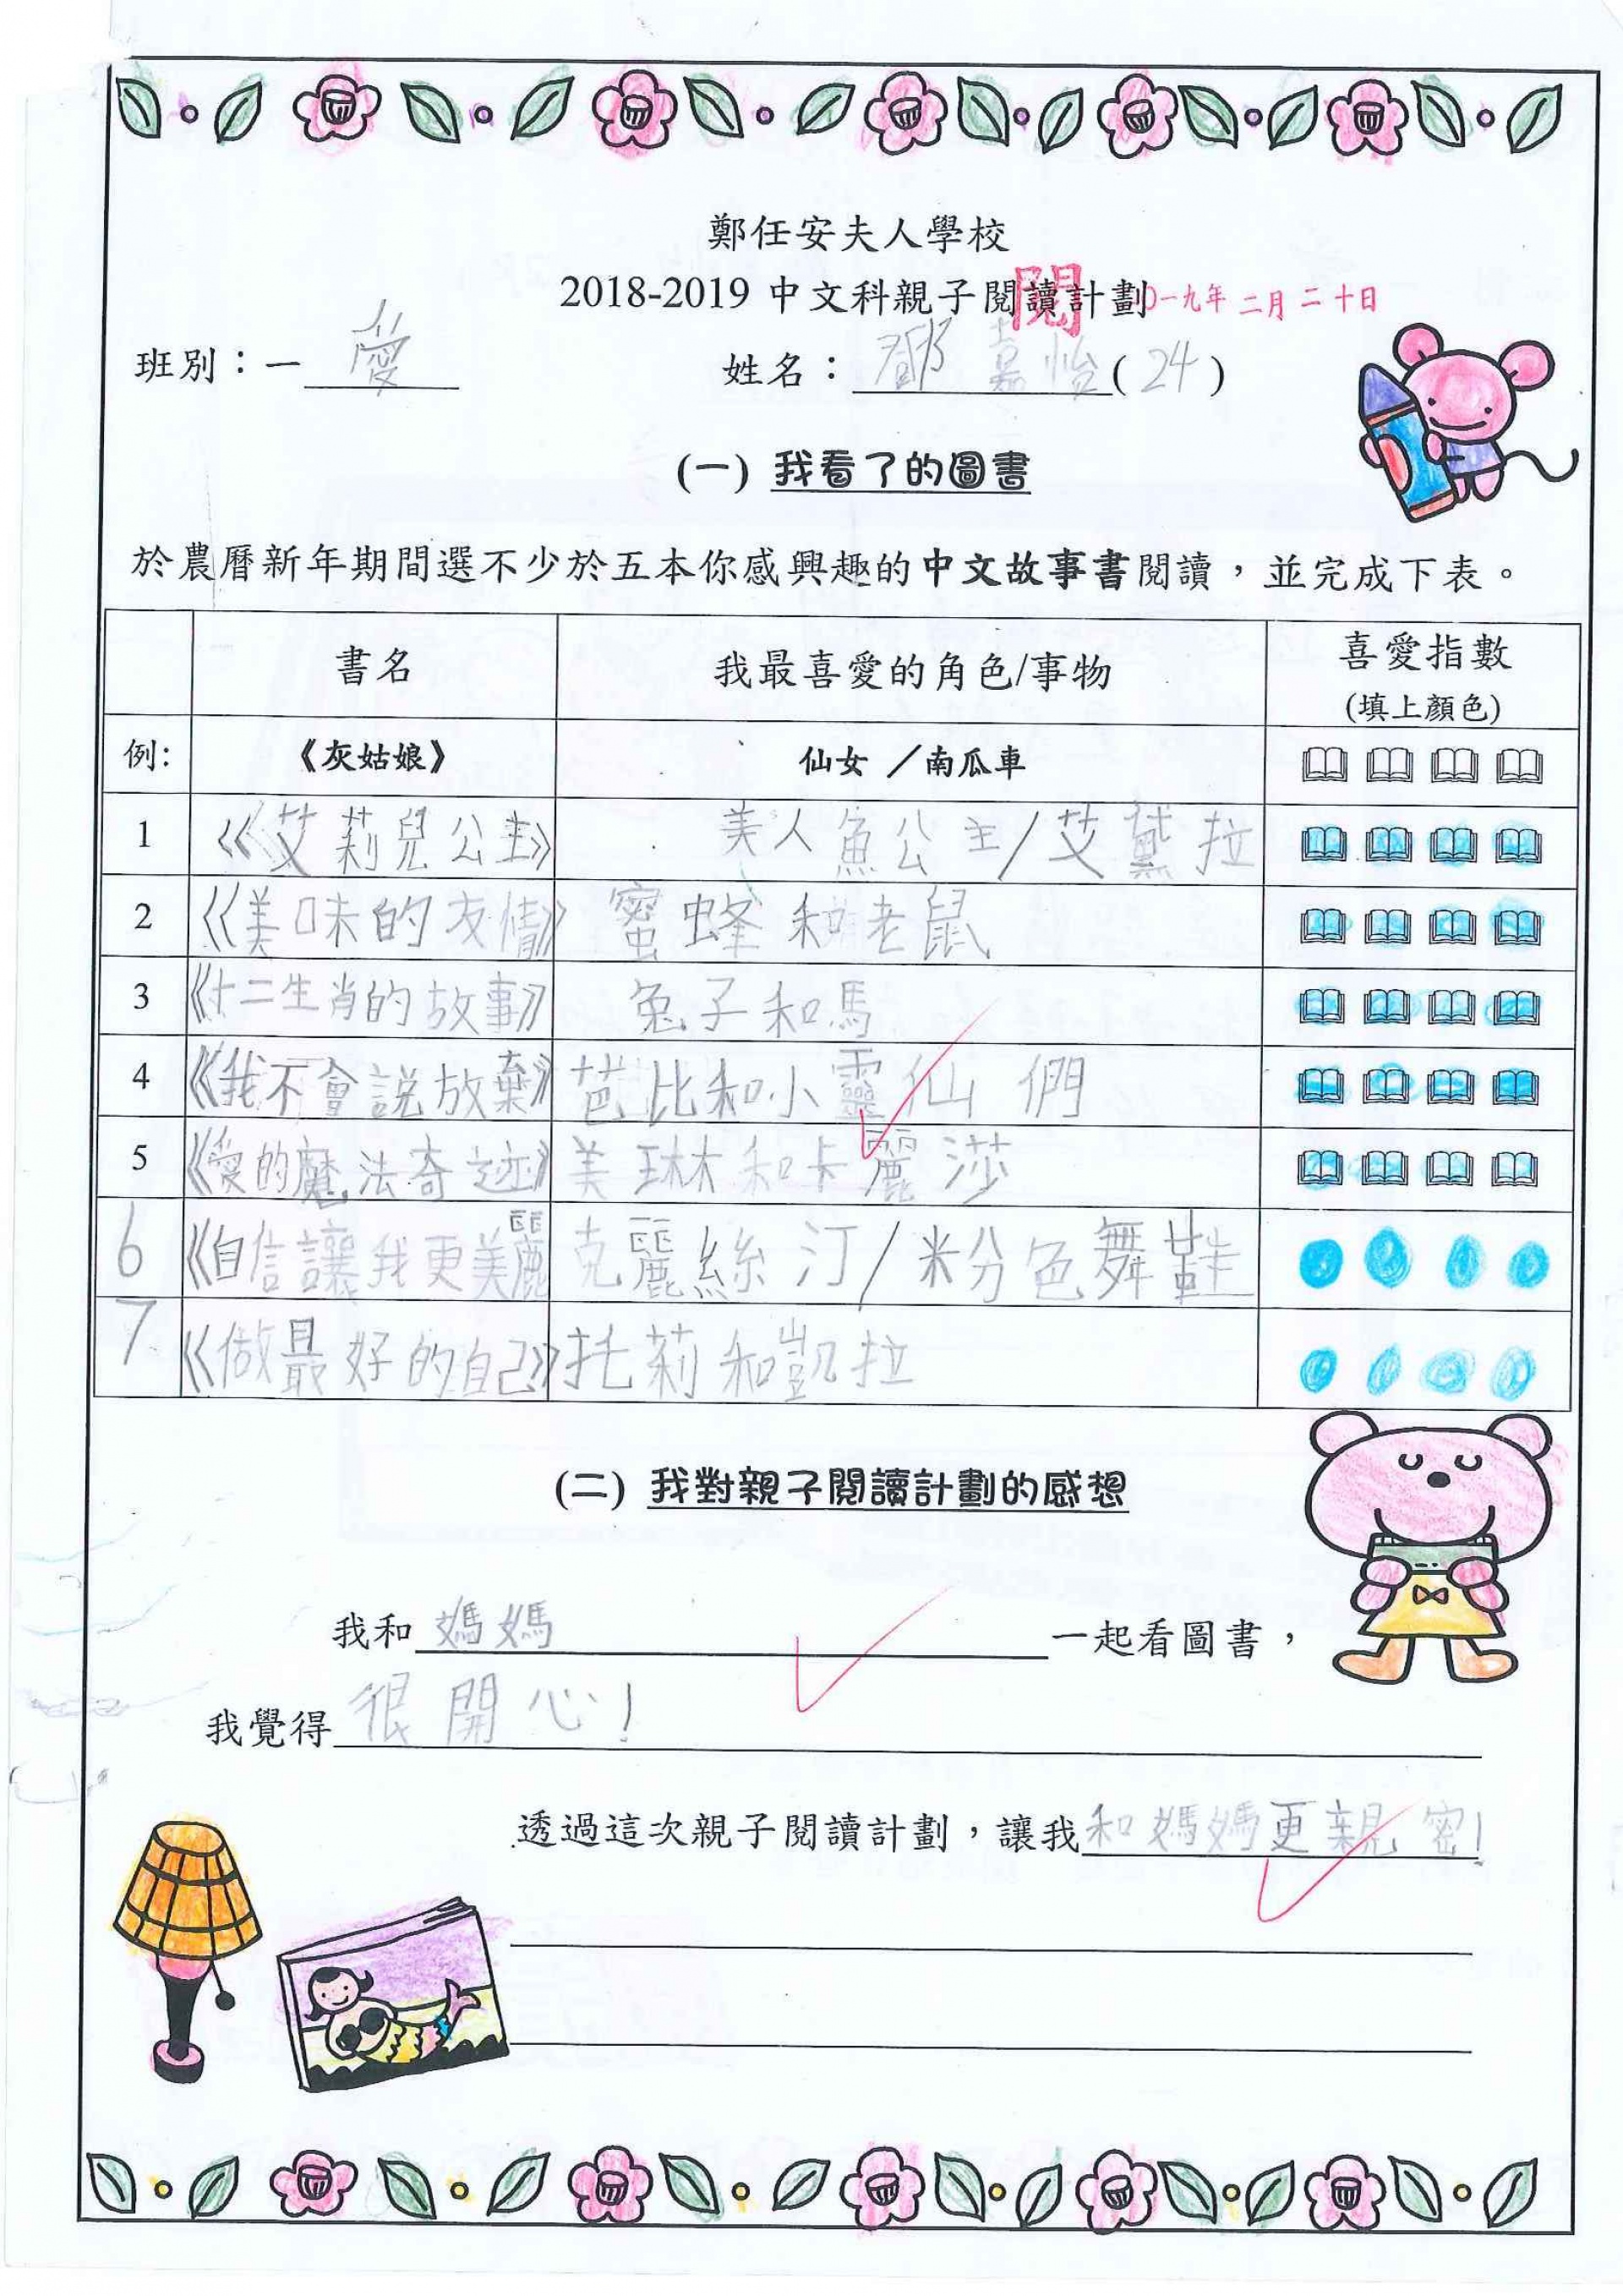 鄭任安夫人學校
2018-2019 中文科親子閱讀計劃
閱 一九年 二月 二十日
班別：一 愛 姓名： 鄧嘉怡 ( 24 )
(一) 我看了的圖書
於農曆新年期間選不少於五本你感興趣的中文故事書閱讀，並完成下表。
書名 我最喜愛的角色/事物 喜愛指數
(填上顏色)
例: 《灰姑娘》 仙女 ／南瓜車
1 《艾莉兒公主》 美人魚公主/艾黛拉
2 《美味的友情》 蜜蜂和老鼠
3 《十二生肖的故事》 兔子和馬
4 《我不會説放棄》 芭比和小靈仙們
5 《愛的魔法奇迹》 美琳和卡麗莎
6 《自信讓我更美麗 克麗絲汀/粉色舞鞋
7 《做最好的自己》 托莉和凱拉
(二) 我對親子閱讀計劃的感想
我和 媽媽 一起看圖書，
我覺得 很開心!
透過這次親子閱讀計劃，讓我和媽媽更親密!